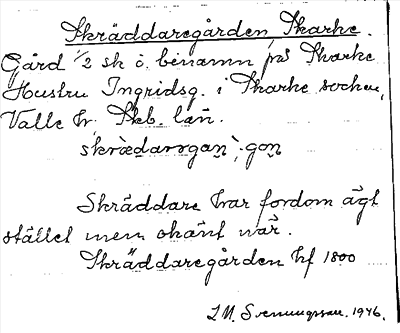 Skräddaregården, Skarke.
Gård 1/2 sh o. benamn på Skarke
Hustru Ingridsg. i Skarke socken,
Valle hr, Skb. län.
skrædaragaṇ, -goṇ
Skräddare har fordom ägt
stället men okänt när.
Skräddaregården hf 1800
I.M. Svenungsson. 1946.